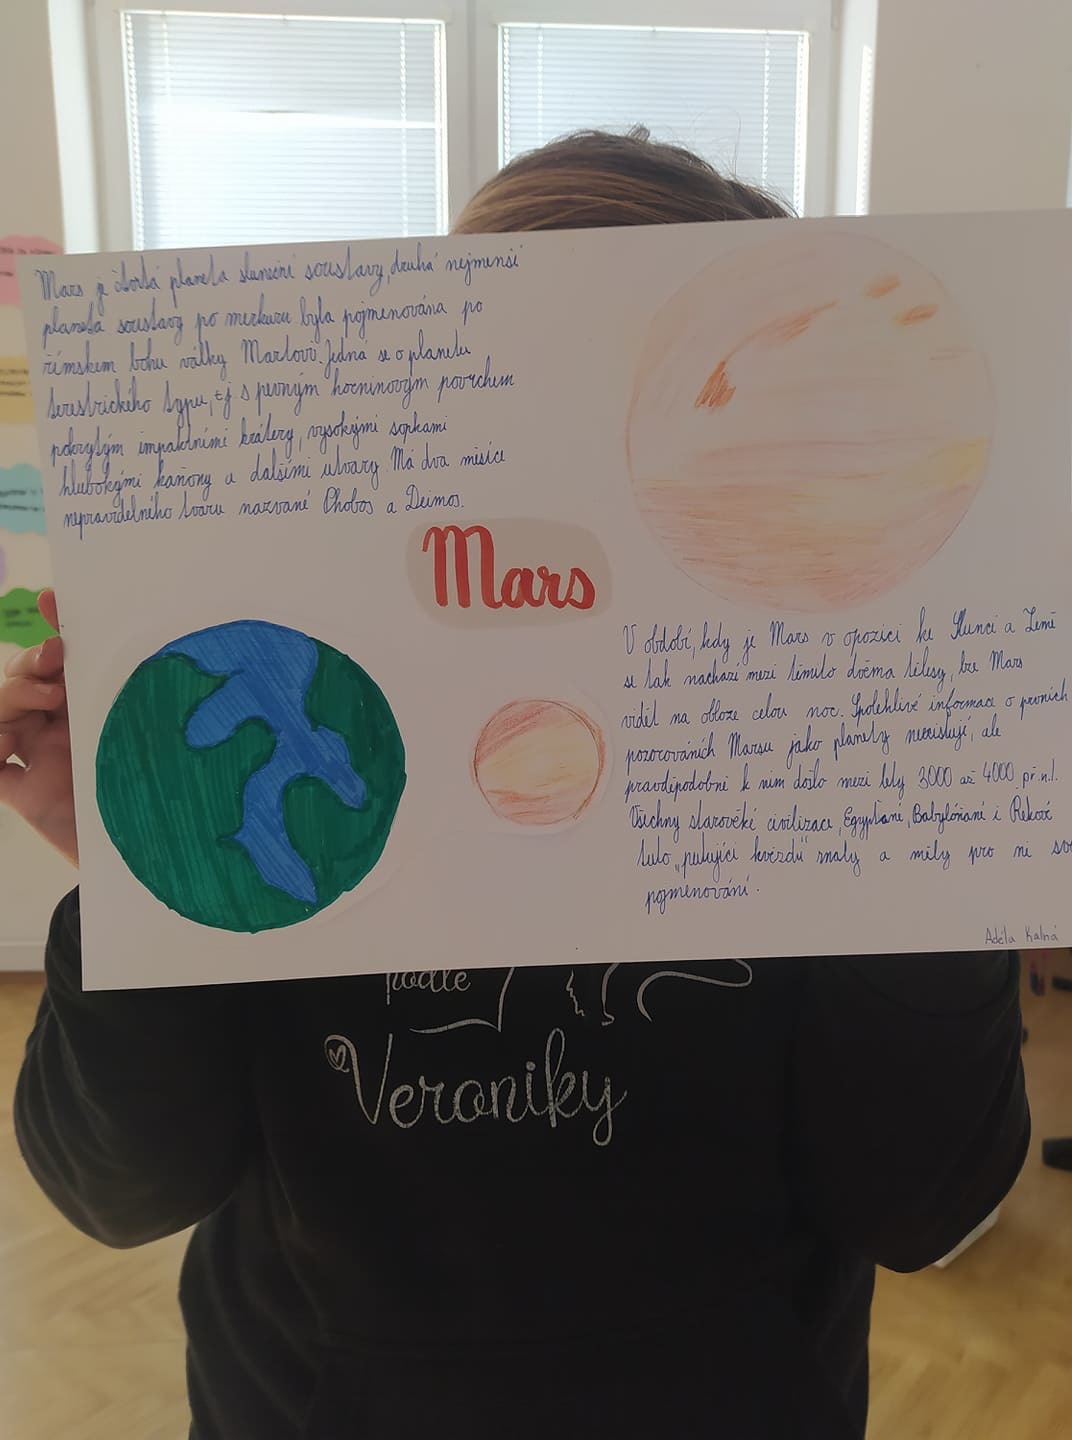 Mars je čtvrtá planeta sluneční soustavy, druhá nejmenší
planeta soustavy po merkuru byla pojmenována po
římském bohu války Martovi. Jedná se o planetu
terestrického typu, tj s pevným horninovým povrchem
pokrytým impaktními krátery, vysokými sopkami
hlubokými kaňony a dalšími utvary. Má dva měsíce
nepravidelného tvaru nazvané Phobos a Deimos.
Mars
V období, kdy je Mars v opozici ke Slunci a Země
se tak nachází mezi těmito dvěma tělesy, lze Mars
vidět na obloze celou noc. Spolehlivé informace o prvních
pozorováních Marsu jako planety neexistují, ale
pravděpodobně k nim došlo mezi lety 3000 až 4000 př.n.l.
Všechny starověké civilizace, Egypťané, Babylóňané i Řekové
tuto „putující hvězdu“ znaly a měly pro ni
pojmenování.
Adéla Kalná
podle
Veroniky